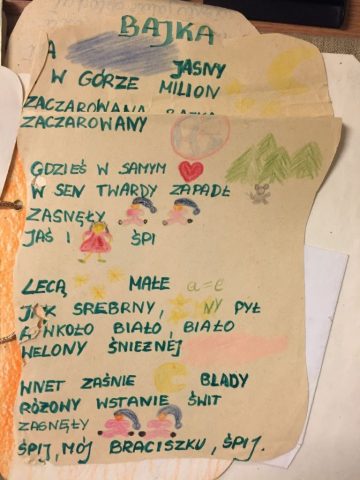 BAJKA
A JASNY
W GÓRZE MILION
ZACZAROWANA BAJKA
ZACZAROWANY
GDZIEŚ W SAMYM
W SEN TWARDY ZAPADŁ
ZASNĘŁY
JAŚ I ŚPI
LECĄ MAŁE a=e
JAK SREBRNY, NY PYŁ
A WKOŁO BIAŁO, BIAŁO
WELONY ŚNIEŻNEJ
WNET ZAŚNIE BLADY
RÓŻOWY WSTANIE ŚWIT
ZASNĘŁY
ŚPIJ, MÓJ BRACISZKU, ŚPIJ.